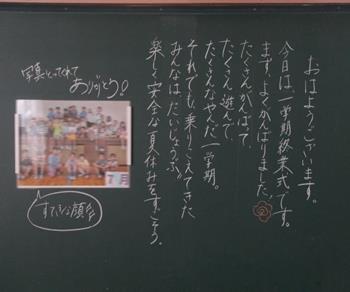 おはようございます。
今日は一学期終業式です。
まず、よくがんばりました。
たくさんがんばって、
たくさん遊んで、
たくさんなやんだ一学期。
それでも乗りこえてきた
みんなは、だいじょうぶ。
楽しく安全な夏休みをすごそう。
写真とってくれて
ありがとう!
7月
すてきな顔